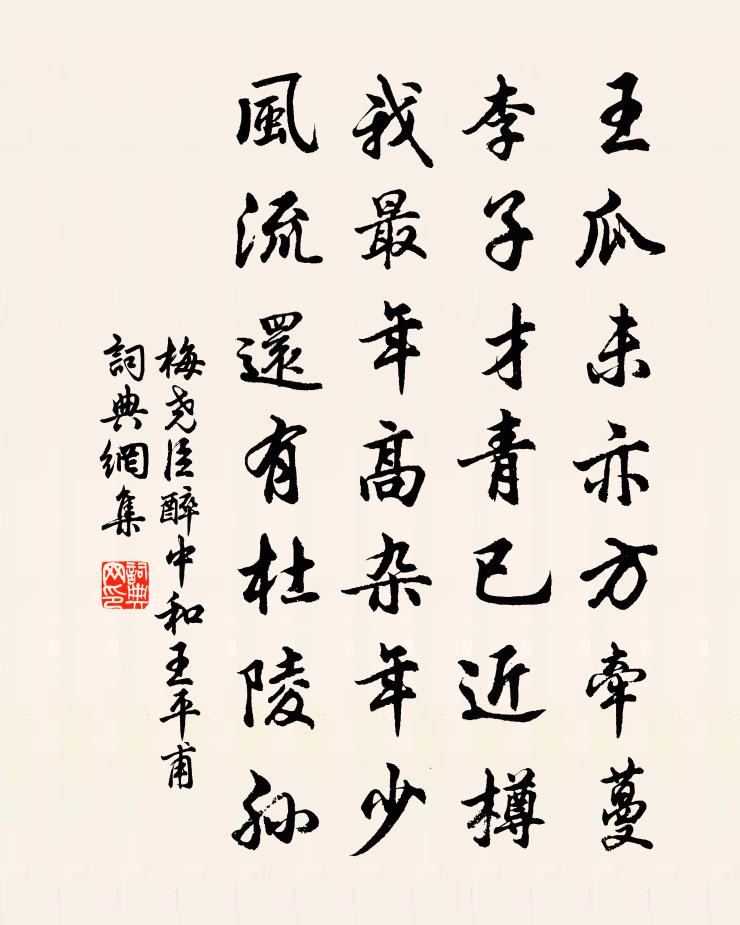 王瓜未亦方牽蔓
李子才青已近樽
我最年高杂年少
風流還有杜陵孫
梅尧臣醉中和王平甫
詞典網集
詞典网印